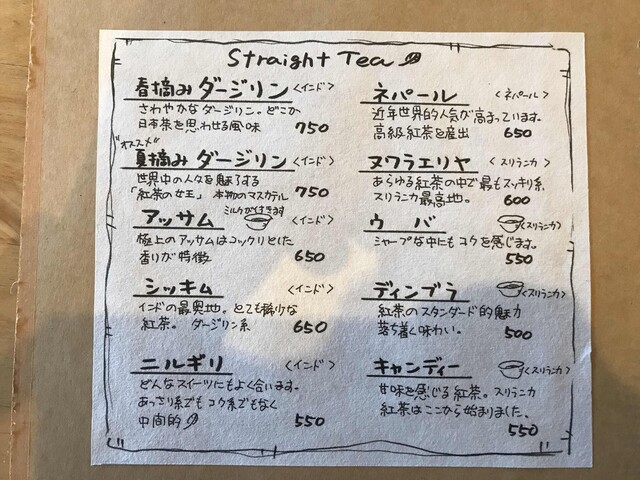 Straight Tea
春摘み ダージリン <インド>
さわやかなダージリン。どこか
日本茶を思わせる風味 750
"オススメ"
夏摘み ダージリン <インド>
世界中の人々を魅了する
「紅茶の女王」 本物のマスカテル 750
ミルクが付きます
アッサム <インド>
極上のアッサムはコックリとした
香りが特徴 650
シッキム <インド>
インドの最奥地。とても稀少な
紅茶。 ダージリン系 650
ニルギリ <インド>
どんなスイーツにもよく合います。
あっさり系でもコク系でもなく
中間的 550
ネパール <ネパール>
近年世界的人気が高まっています。
高級紅茶を産出 650
ヌワラエリヤ <スリランカ>
あらゆる紅茶の中で最もスッキリ系
スリランカ最高地。 600
ウバ <スリランカ>
シャープな中にもコクを感じます。
550
ディンブラ <スリランカ>
紅茶のスタンダード的魅力
落ち着く味わい。 500
キャンディー <スリランカ>
甘味を感じる紅茶。スリランカ
紅茶はここから始まりました。
550